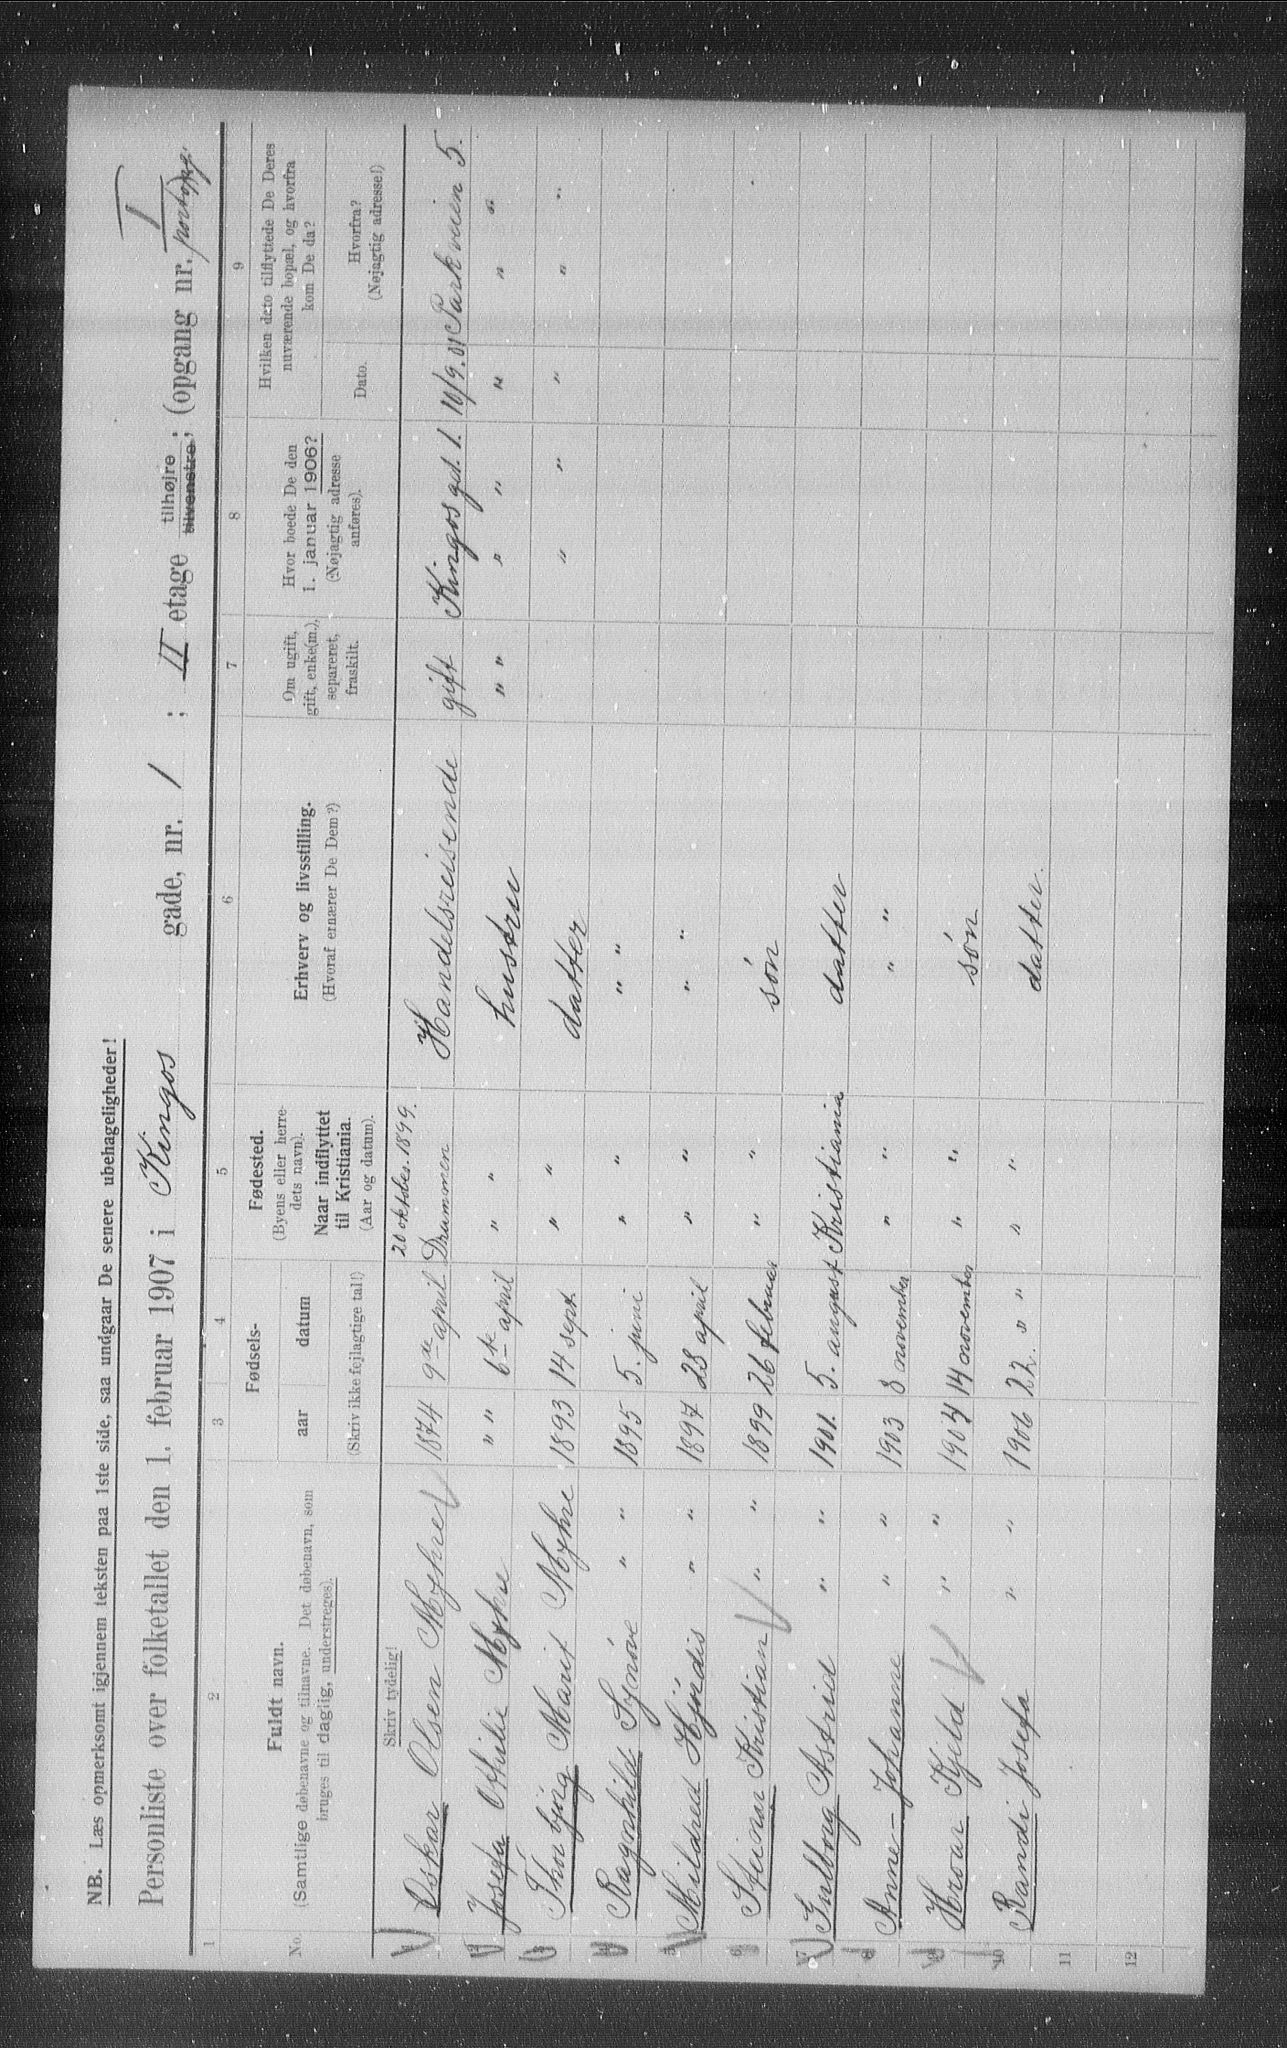 NB. Læs opmerksomt igjennem teksten paa 1ste side, saa undgaar De senere ubehageligheder!
Personliste over folketallet den 1. februar 1907 i Kingos gade, nr. 1 ; II etage tilhøjre tilvenstre; (opgang nr. I portopg.
1 2 3 4 5 6 7 8 9
No. Fuldt navn. (Samtlige døbenavne og tilnavne. Det døbenavn, som bruges til daglig, understreges).
Fødsels- aar datum (Skriv ikke fejlagtige tal!)
Fødested. (Byens eller herredets navn). Naar indflyttet til Kristiania. (Aar og datum).
Erhverv og livsstilling. (Hvoraf ernærer De Dem?)
Om ugift, gift, enke(m.), separeret, fraskilt.
Hvor boede De den 1. januar 1906? (Nøjagtig adresse anføres).
Hvilken dato tilflyttede De Deres nuværende bopæl, og hvorfra kom De da?
Dato. Hvorfra? (Nøjagtig adresse!)
Skriv tydelig!
20 oktober 1899.
1 Oskar Olsen Myhre 1874 9de april Drammen Handelsreisende gift Kingos gd. 1. 10/9.01 Parkveien 5.
2 Josefa Othilie Myhre " " 6te april " " hustru " " " " " " "
3 Thorbjørg Marit Myhre 1893 14 sept. " " datter " " " " "
4 Ragnhild Synøve " " 1895 5. juni " " " "
5 Mildred Hjørdis " " 1897 23 april " " " "
6 Steinar Kristian " " 1899 26 februar " " søn
7 Gulborg Astrid " " 1901. 5. august Kristiania datter
8 Anne-Johanne " " 1903 8 november " " " "
9 Hroar Kjeld " " 1904 14 november " " søn
10 Randi Josefa " " 1906 22. " " " " datter.
11
12